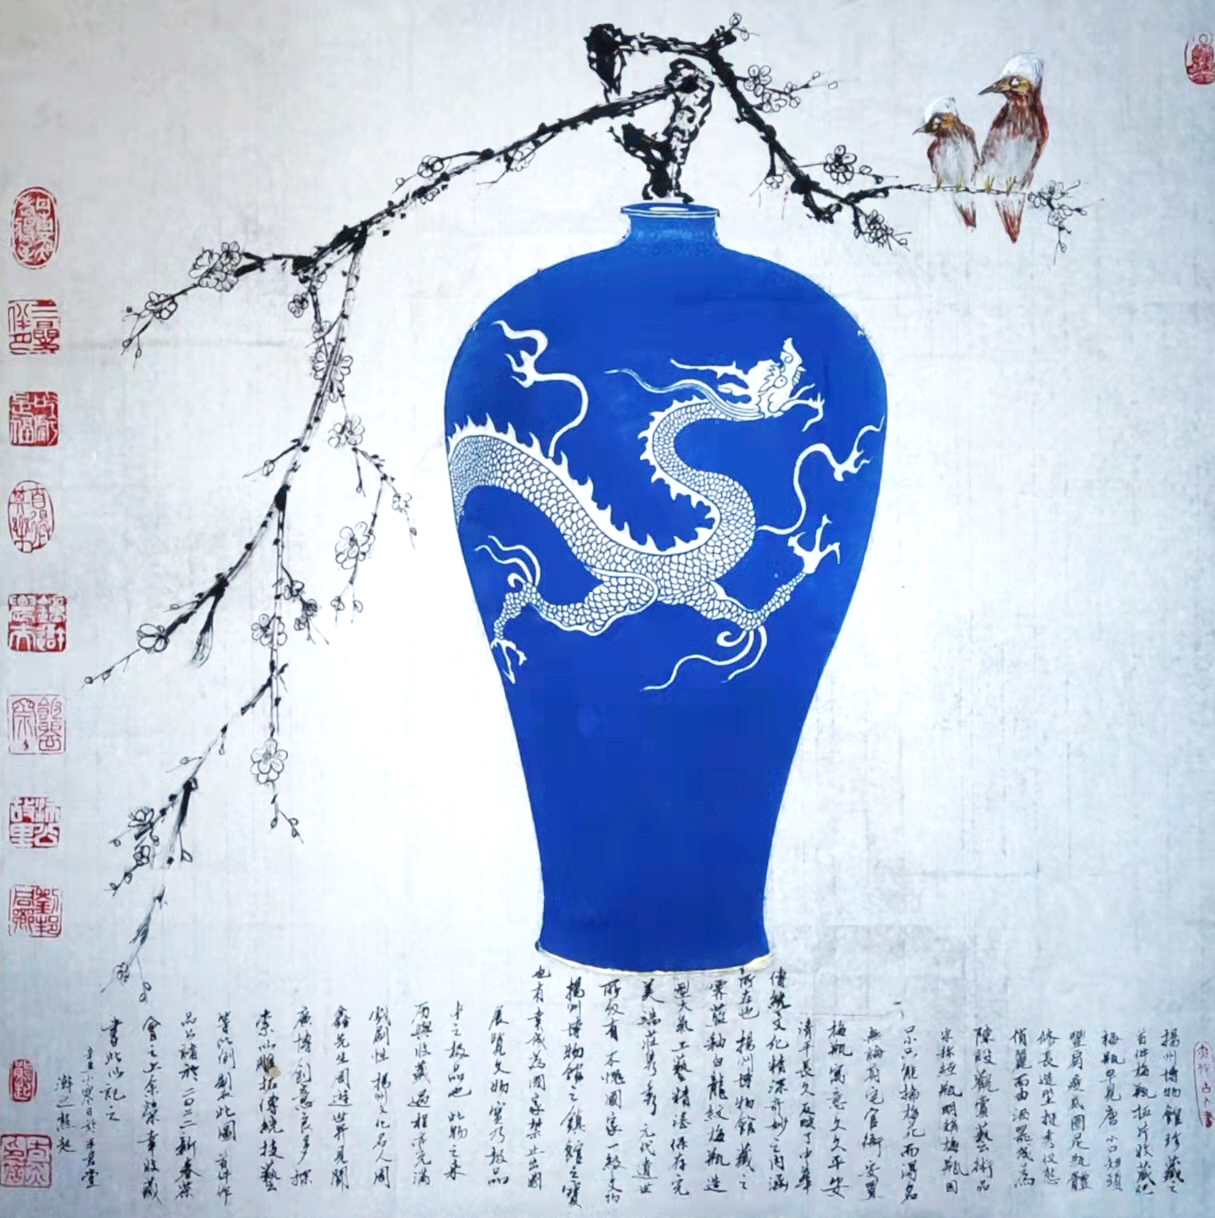 揚州博物館珍藏之
首件梅瓶拓片收藏也
梅瓶早見唐小口短頸
豐肩瘦底圈足瓶體
修長造型挺秀仪态
俏麗而由酒器成為
陳設觀賞藝術品
宋称經瓶明稱梅瓶因
口只能插梅花而得名
無論府宅官衙安置
梅瓶寓意久久平安
清平長久反映了中華
傳統文化精深奇妙之内涵
所在也 揚州博物館藏之
霽藍釉白龍紋梅瓶造
型大氣工藝精湛保存完
美端莊秀 元代遺世
所仅有 不愧國家一級文物
揚州博物館之鎮館之寶
也有幸成為國家禁止出國
展覽文物實乃极品
中之极品也 此物之来
而與收藏過程亦充滿
戲劇性 揚州文化名人周
鑫先生周遊世界見聞
廣博 創意良多 探
索以雕拓傳統技藝
等比例制此圖 首件作
品公諸於二〇二二新春茶
會之上余榮幸收藏
書此以記之
辛丑小寒日於半君堂